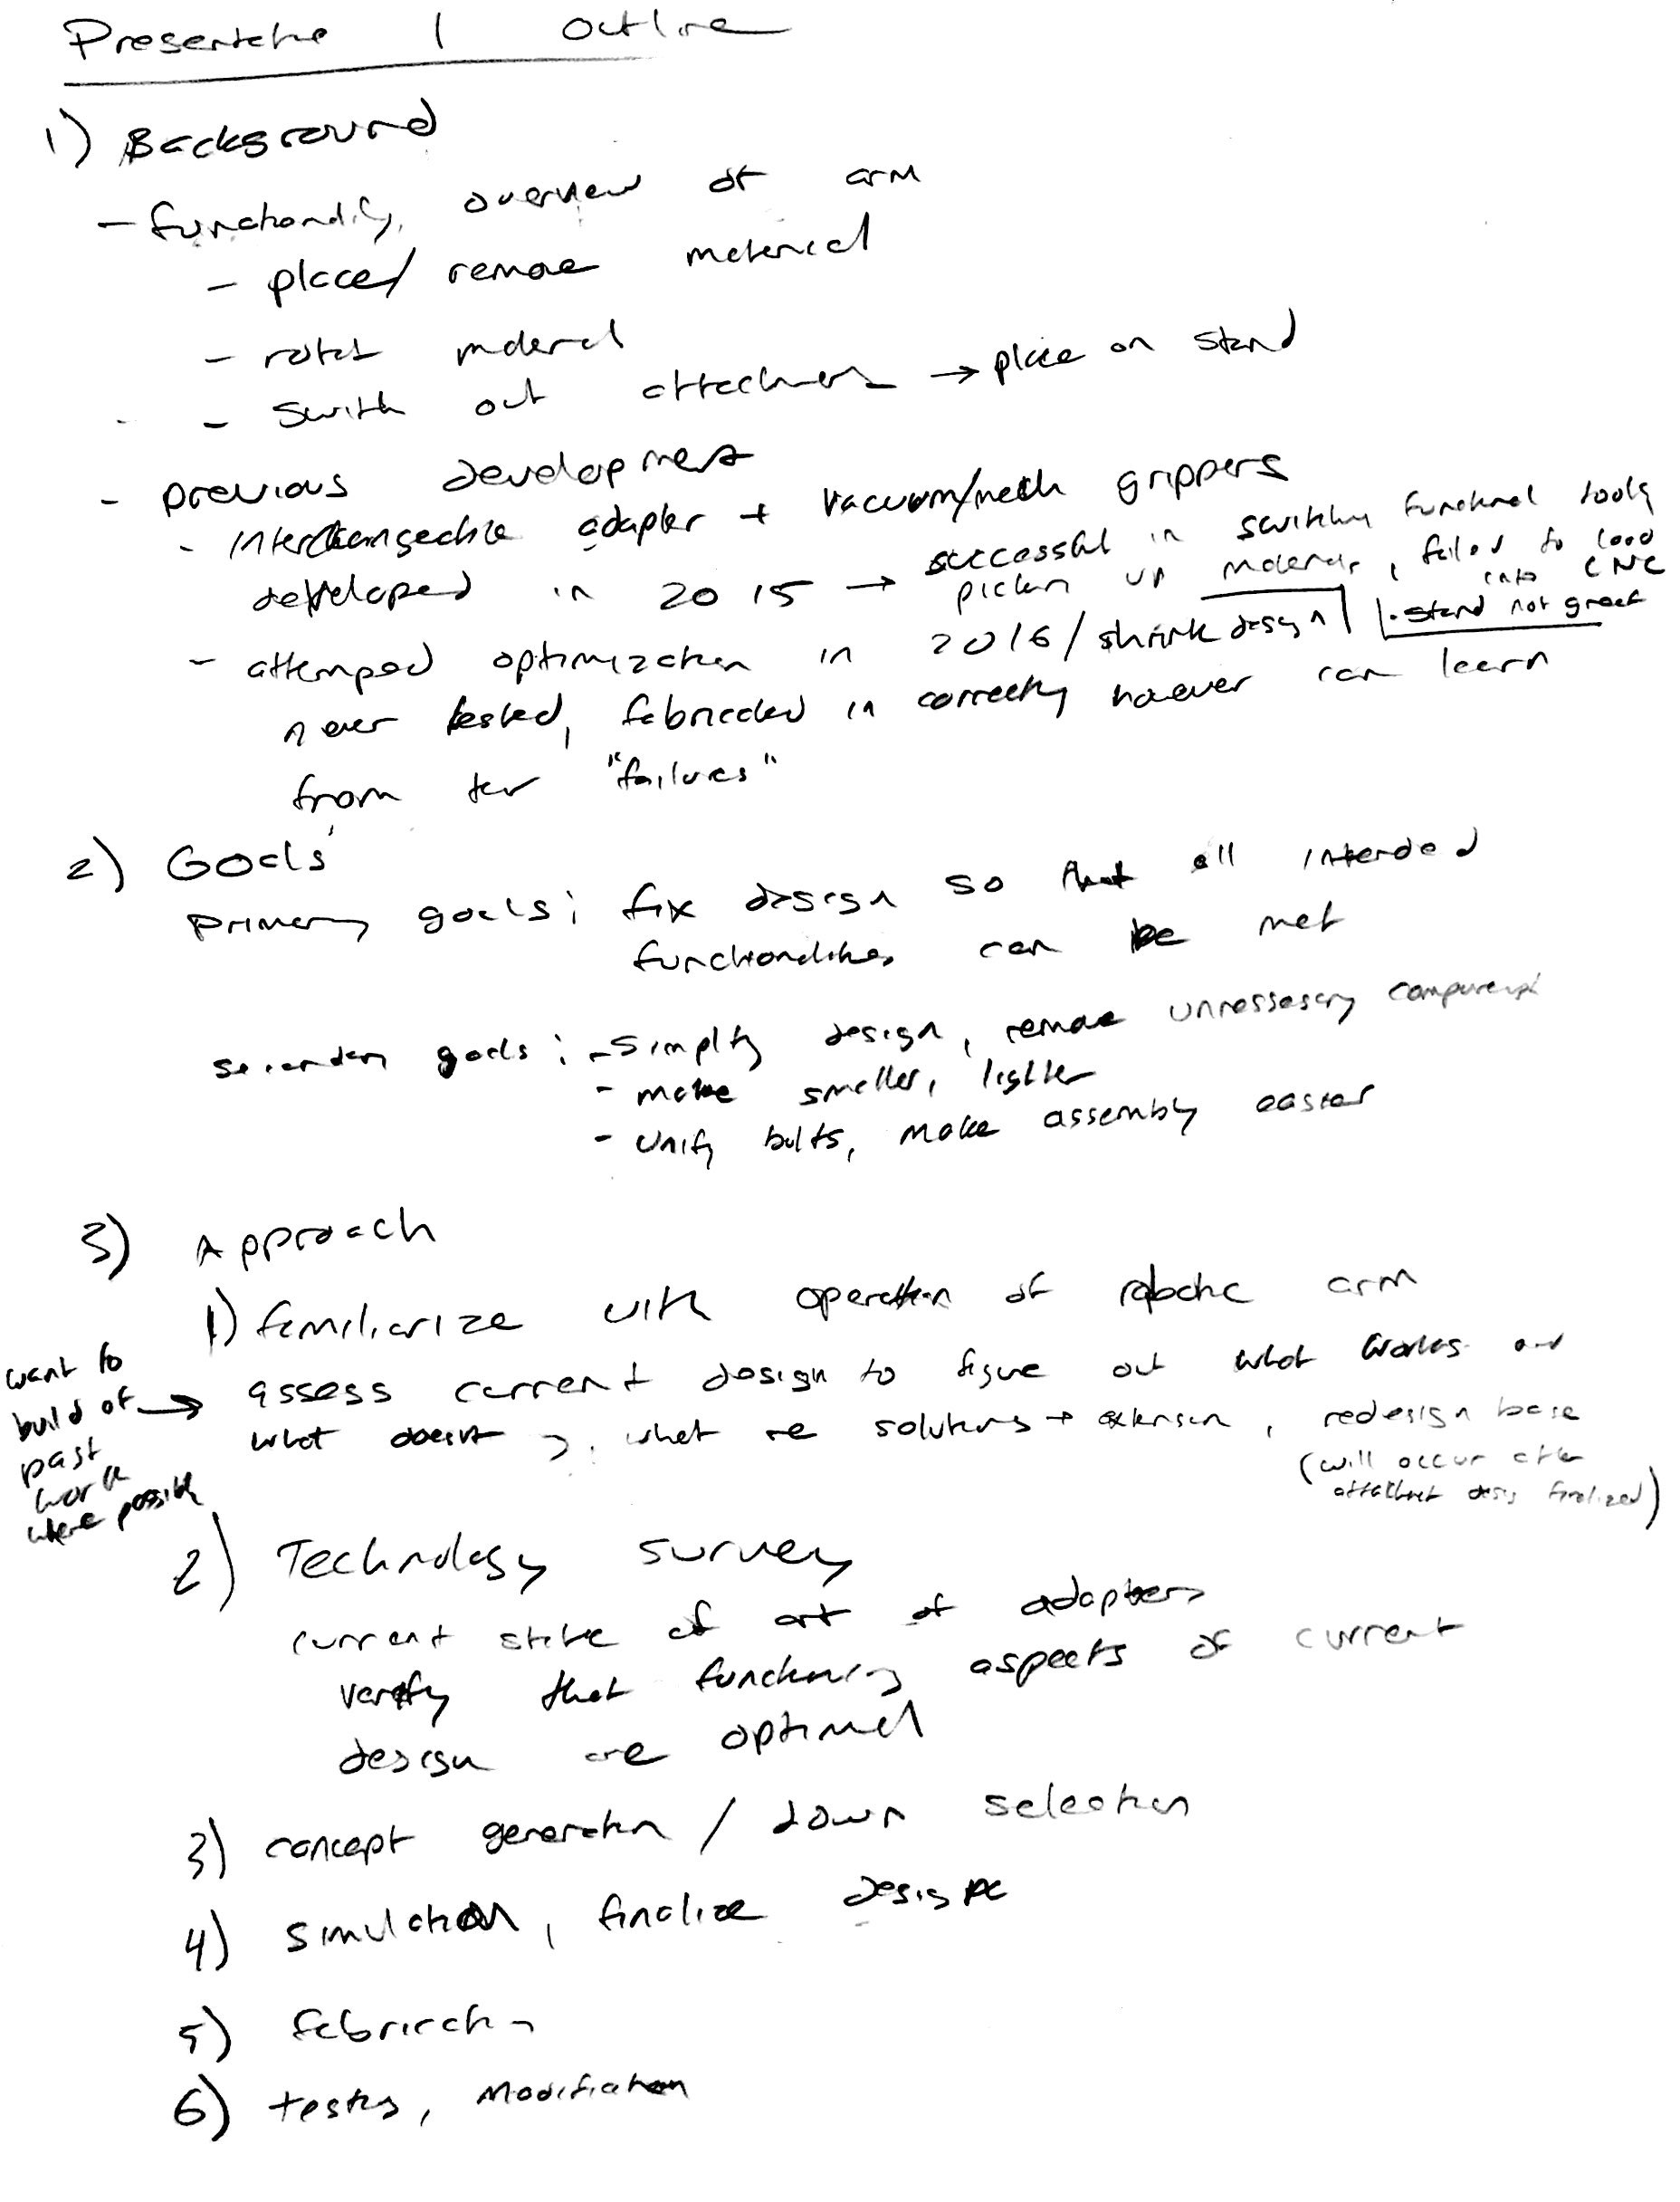 Presentation 1 Outline
1) Background
- functionality, overview of arm
- place/ remove material
- rotate material
- switch out attachments → place on stand
- previous development
- interchangeable adapter + vacuum/mech grippers
developed in 2015 → successful in switching functional tools
picking up materials, failed to load
into CNC
- attemped optimization in 2016/shrink design
• stand not great
never tested, fabricated incorrectly however can learn
from their "failures"
2) Goals
primary goals: fix design so that all intended
functionalities can be met
secondary goals: - simplify design, remove unnessesary components
- make smaller, lighter
- unify bolts, make assembly easier
3) Approach
1) familiarize with operation of robotic arm
want to
build of →
past
work
where possible
assess current design to figure out what works and
what doesnt what are solutions → extension, redesign base
(will occur after
attachment design finalized)
2) Technology survey
current state of art of adapters
verify that functioning aspects of current
design are optimal
3) concept generation / down selection
4) simulation, finalize design
5) fabrication
6) testing, modification